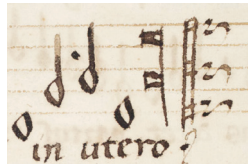 in utero.